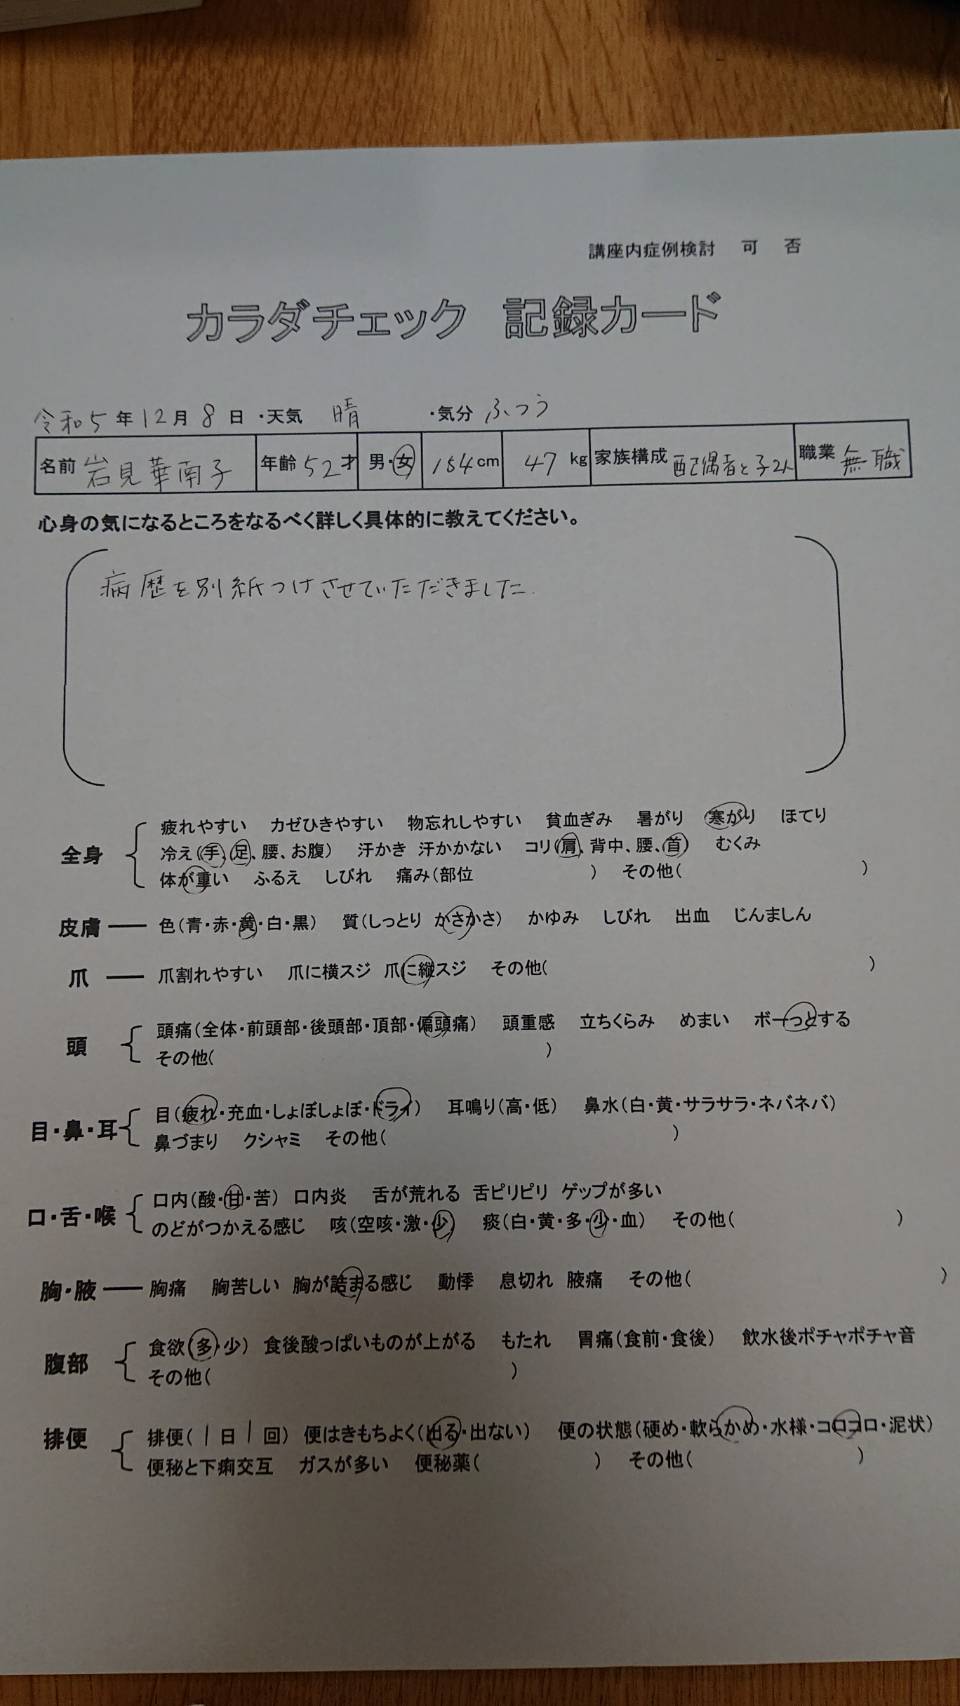 講座内症例検討 可 否
カラダチェック 記録カード
令和5年12月8日 ・天気 晴 ・気分 ふつう
名前 岩見華南子 年齢 52才 男・女 154cm 47kg 家族構成 配偶者と子2人 職業 無職
心身の気になるところをなるべく詳しく具体的に教えてください。
病歴を別紙つけさせていただきました
全身
疲れやすい カゼひきやすい 物忘れしやすい 貧血ぎみ 暑がり 寒がり ほてり
冷え(手、足、腰、お腹) 汗かき 汗かかない コリ(肩、背中、腰、首) むくみ
体が重い ふるえ しびれ 痛み(部位 ) その他( )
皮膚 色(青・赤・黄・白・黒) 質(しっとり かさかさ) かゆみ しびれ 出血 じんましん
爪 爪割れやすい 爪に横スジ 爪に縦スジ その他( )
頭
頭痛(全体・前頭部・後頭部・頂部・偏頭痛) 頭重感 立ちくらみ めまい ボーっとする
その他( )
目・鼻・耳
目(疲れ・充血・しょぼしょぼ・ドライ) 耳鳴り(高・低) 鼻水(白・黄・サラサラ・ネバネバ)
鼻づまり クシャミ その他( )
口・舌・喉
口内(酸・甘・苦) 口内炎 舌が荒れる 舌ピリピリ ゲップが多い
のどがつかえる感じ 咳(空咳・激・少) 痰(白・黄・多・少・血) その他( )
胸・腋 胸痛 胸苦しい 胸が詰まる感じ 動悸 息切れ 腋痛 その他( )
腹部
食欲(多・少) 食後酸っぱいものが上がる もたれ 胃痛(食前・食後) 飲水後ポチャポチャ音
その他( )
排便
排便(1日1回) 便はきもちよく(出る・出ない) 便の状態(硬め・軟らかめ・水様・コロコロ・泥状)
便秘と下痢交互 ガスが多い 便秘薬( ) その他( )